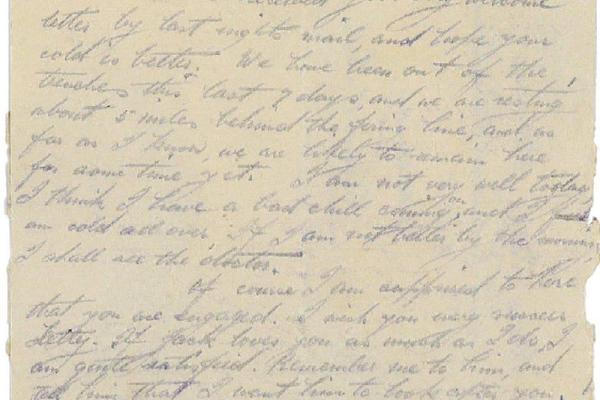 received your very welcome
letter by last nights mail, and hope your
cold is better. We have been out of the
trenches this last 7 days, and we are resting
about 5 miles behind the firing line, and as
far as I know, we are likely to remain here
for some time yet. I am not very well today,
I think I have a bad chill coming, and I
am cold all over. If I am not better by the morning
I shall see the doctor.
Of course I am surprised to hear
that you are engaged. I wish you every success
Letty. If Jack loves you as much as I do, I
am quite satisfied. Remember me to him, and
tell him that I want him to look after you,